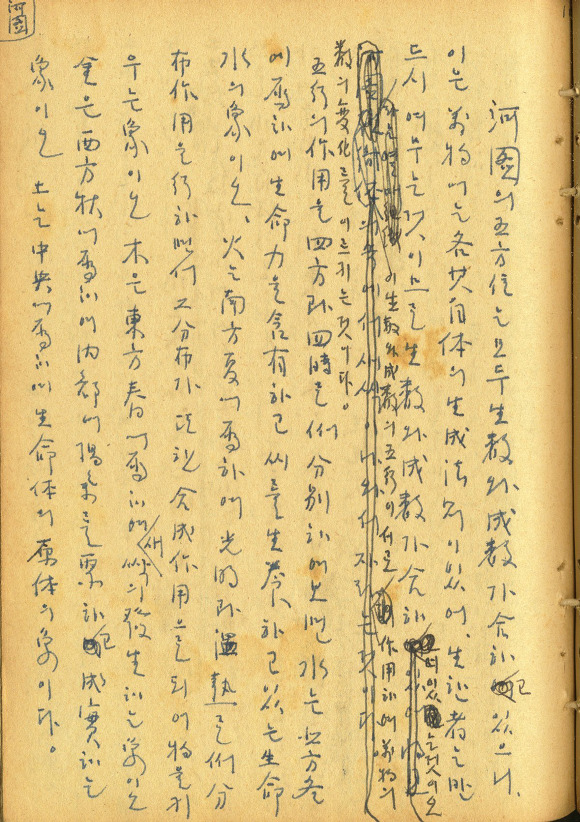 河圖
河圖의 五方位는 모두 生數와 成數가 合하고 있으니,
이는 萬物에는 各其自体의 生成法則이 있어, 生된 者는 반
드시 여무는 것, 이므로 生數와 成數가 合하
여 있는 것이오
이 生數와 成數의 五行이 서로 作用하여 萬物의
數의 變化를 이르키는 것이다。
五行의 作用을 四方과 四時로써 分別하여 보면 水는 北方冬
에 屬하여 生命力을 含有하고 씨를 生養하고 있는 生命
水의 象이오、火는 南方夏에 屬하여 光明과 溫熱로써 分
布作用을 行하며 分布가 合成作用으로 되어 物을 키
우는 象이오 木은 東方春에 屬하여 새싹이 發生하는 象이오
金은 西方秋에 屬하여 內部에 陽氣를 하고 成實하는
象이오 土는 中央에 屬하여 生命体의 原体의 象이다。